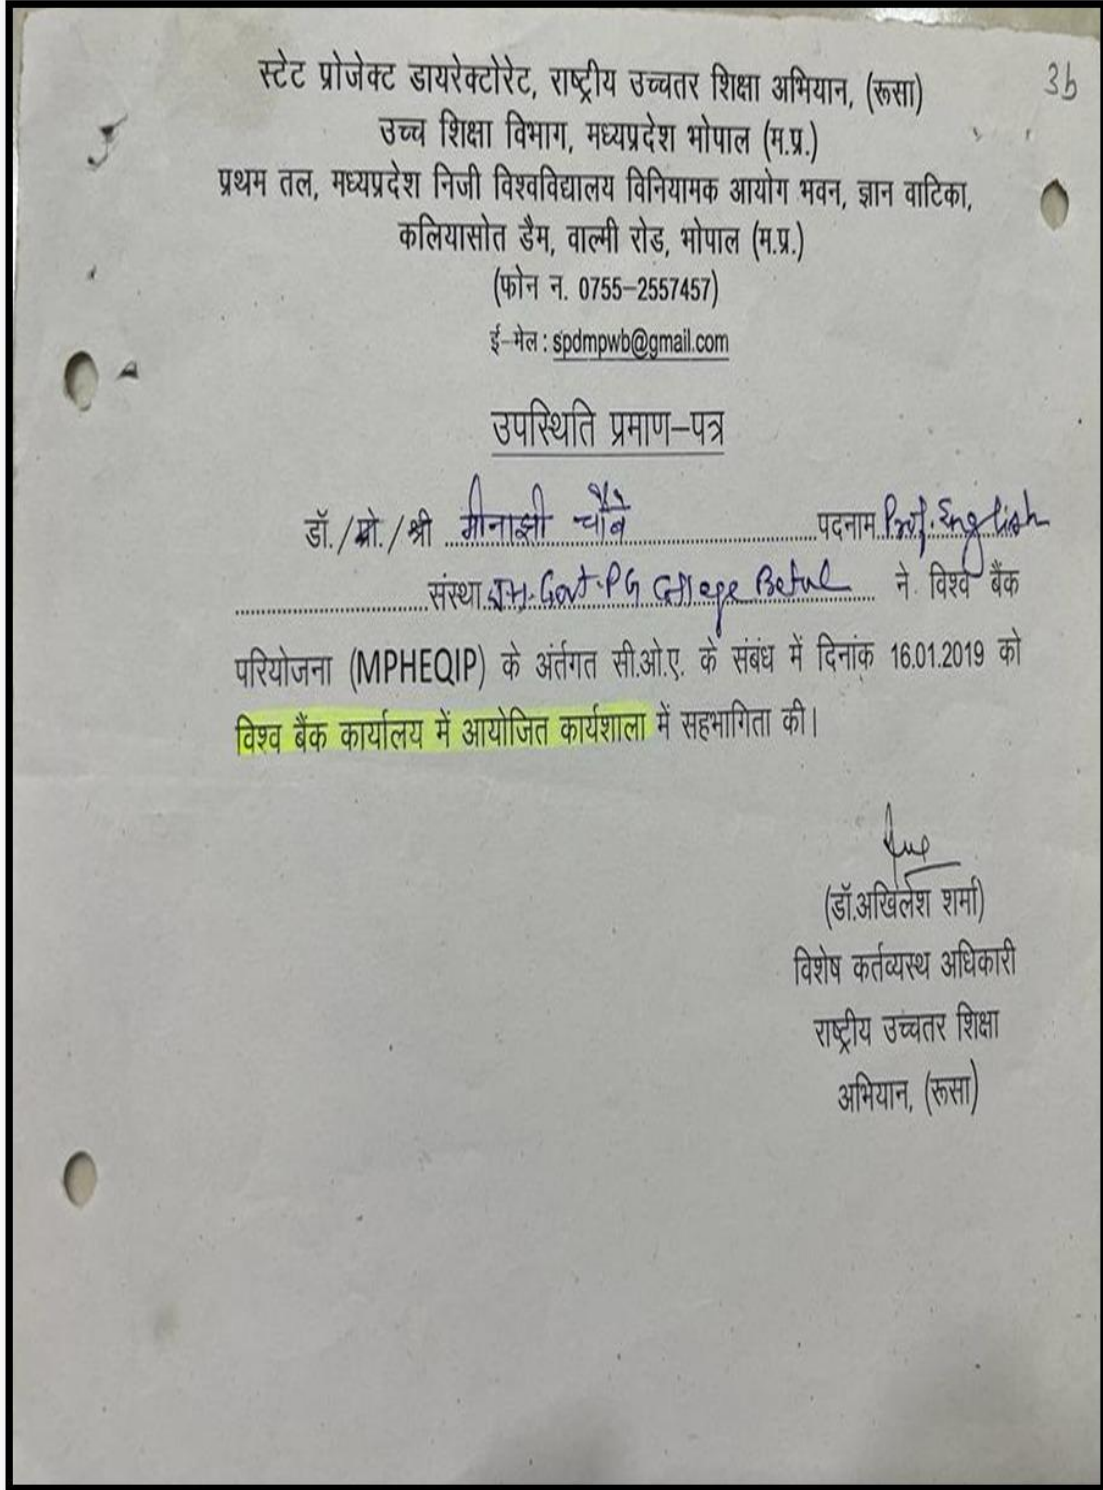 3b
स्टेट प्रोजेक्ट डायरेक्टोरेट, राष्ट्रीय उच्चतर शिक्षा अभियान, (रूसा)
उच्च शिक्षा विभाग, मध्यप्रदेश भोपाल (म.प्र.)
प्रथम तल, मध्यप्रदेश निजी विश्वविद्यालय विनियामक आयोग भवन, ज्ञान वाटिका,
कलियासोत डैम, वाल्मी रोड, भोपाल (म.प्र.)
(फोन न. 0755–2557457)
ई–मेल : spdmpwb@gmail.com
उपस्थिति प्रमाण–पत्र
डॉ./प्रो./श्री मीनाक्षी चौबे पदनाम Prof. English
संस्था J.H. Govt. PG College Betul ने विश्व बैंक
परियोजना (MPHEQIP) के अंर्तगत सी.ओ.ए. के संबंध में दिनांक 16.01.2019 को
विश्व बैंक कार्यालय में आयोजित कार्यशाला में सहभागिता की।
(डॉ.अखिलेश शर्मा)
विशेष कर्तव्यस्थ अधिकारी
राष्ट्रीय उच्चतर शिक्षा
अभियान, (रूसा)